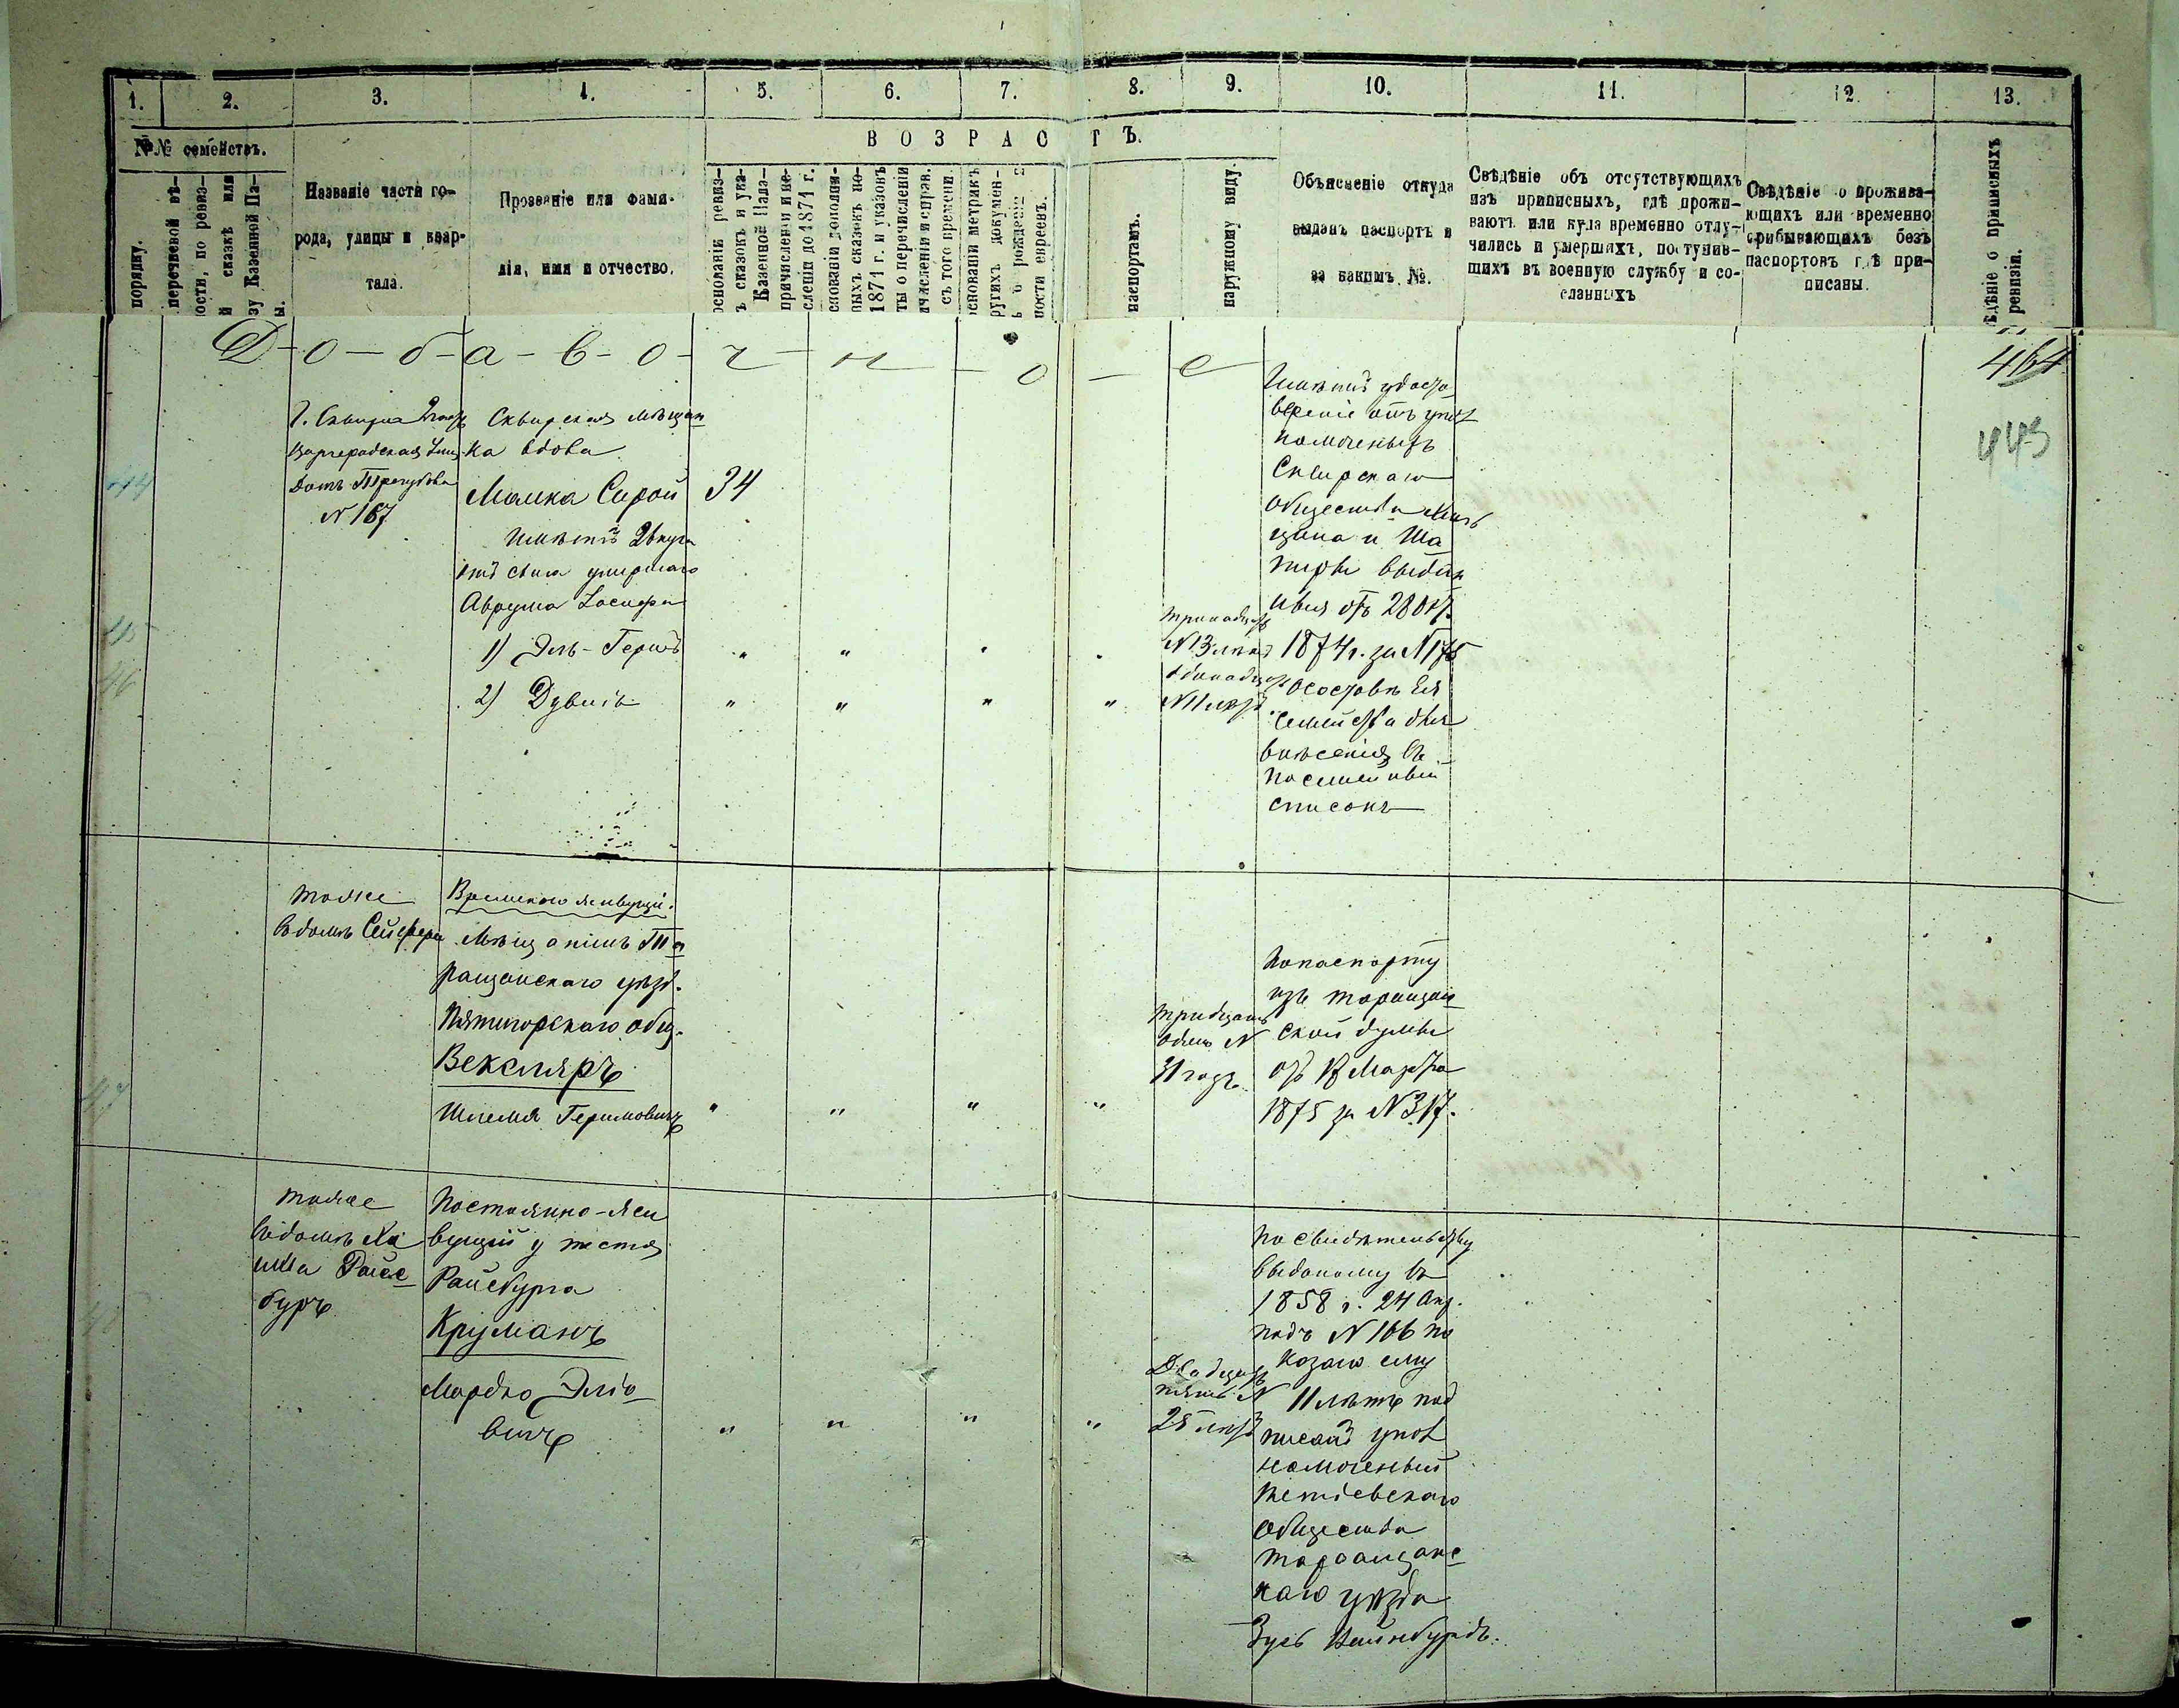 1. 2. 3. 4. 5. 6. 7. 8. 9. 10. 11. 12. 13.
№№ семействъ.
В О З Р А С Т Ъ.
порядку.
перечневой вѣ-
ности, по ревиз-
й сказкѣ или
зу Казенной Па-
ы.
Названіе части го-
рода, улицы и квар-
тала.
Прозваніе или фами-
лія, имя и отчество.
основаніи ревиз-
ъ сказокъ и ука-
Казенной Пала-
причисленіи и не-
слепіи до 1871 г.
сновании дополни-
ныхъ сказокъ по-
1871 г. и указовъ
ты о перечисленіи
ичисленіи и справ.
съ того времени.
основаніи метрикъ
ругихъ докумен-
ъ о рожденіи
ности евреевъ.
паспортамъ.
наружному виду.
Объясненіе откуда
выданъ паспортъ и
за какимъ №.
Свѣдѣніе объ отсутствующихъ
изъ приписныхъ, гдѣ прожи-
ваютъ или куда временно отлу-
чились и умершихъ, поступив-
шихъ въ военную службу и со-
сланныхъ
Свѣдѣніе о прожива-
ющихъ или временно
прибывающихъ безъ
паспортовъ гдѣ при-
писаны.
ѣдѣніе о приписныхъ
ревизіи.
Д-о-б-а-в-о-ч-н-о-е
464
443
Г. Сквира 2 часть
Цареградская Улиц
Домъ Трегубова
N 167
44
Сквирская мѣщан
ка вдова
Малка Сирой 34
Имѣетъ 2 внука
отъ сына умершаго
Аврума Іосифа
45
1) Эль-Гершъ " " " "
тринадцать
N 13 лѣтъ
46
2) Дувидъ " " " "
одинадцать
N 11 лѣтъ
Имѣетъ удосто
вереніе отъ упол
номоченыхъ
Сквирскаго
общества
цина и Ша
пиры выдан
ныя отъ 28 окт.
1874 г. за N 175
о составѣ Ея
Семейства для
внесенія въ
посемейный
списокъ
тоже
въ домѣ Сейфера
Временно живущій.
Мѣщанинъ Та
ращанскаго уѣзд.
Пятигорскаго общ.
Векслярь
47
Шлема Гершковичъ " " " "
тридцать
одинъ N
31 годъ
по паспорту
изъ таращан
ской думы
отъ 17 Марта
1875 за N 317.
тоже
въ домѣ Ха
има Райс
бурх
Постоянно-жи
вущій у тестя
Райсбурга
Круманъ
48
Мордко Эліо
вичъ " " " "
Двадцать
пять N
25 лѣтъ
по свидѣтельству
выданому въ
1858 г. 24 Апр.
подъ N 166 по
казано ему
11 лѣтъ под
писалъ упол
номоченый
Тетіевскаго
общества
Тараащанс
каго уѣзда
Зусь Вайнбурдъ.